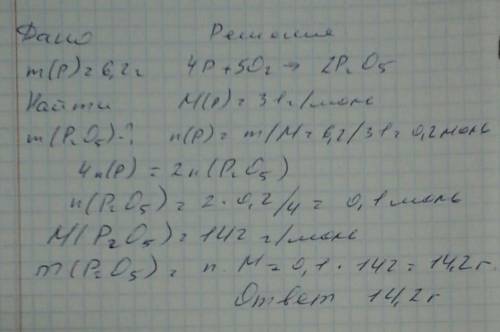 Дано Решение
m(P)=6,2г 4P+5O₂→ 2P₂O₅
Найти M(P)=31г/моль
m(P₂O₅)-? n(P)=m/M=6,2/31=0,2моль
4n(P)=2n(P₂O₅)
n(P₂O₅)=2·0,2/4=0,1моль
M(P₂O₅)=142 г/моль
m(P₂O₅)=n·M=0,1·142=14,2г.
Ответ 14,2г